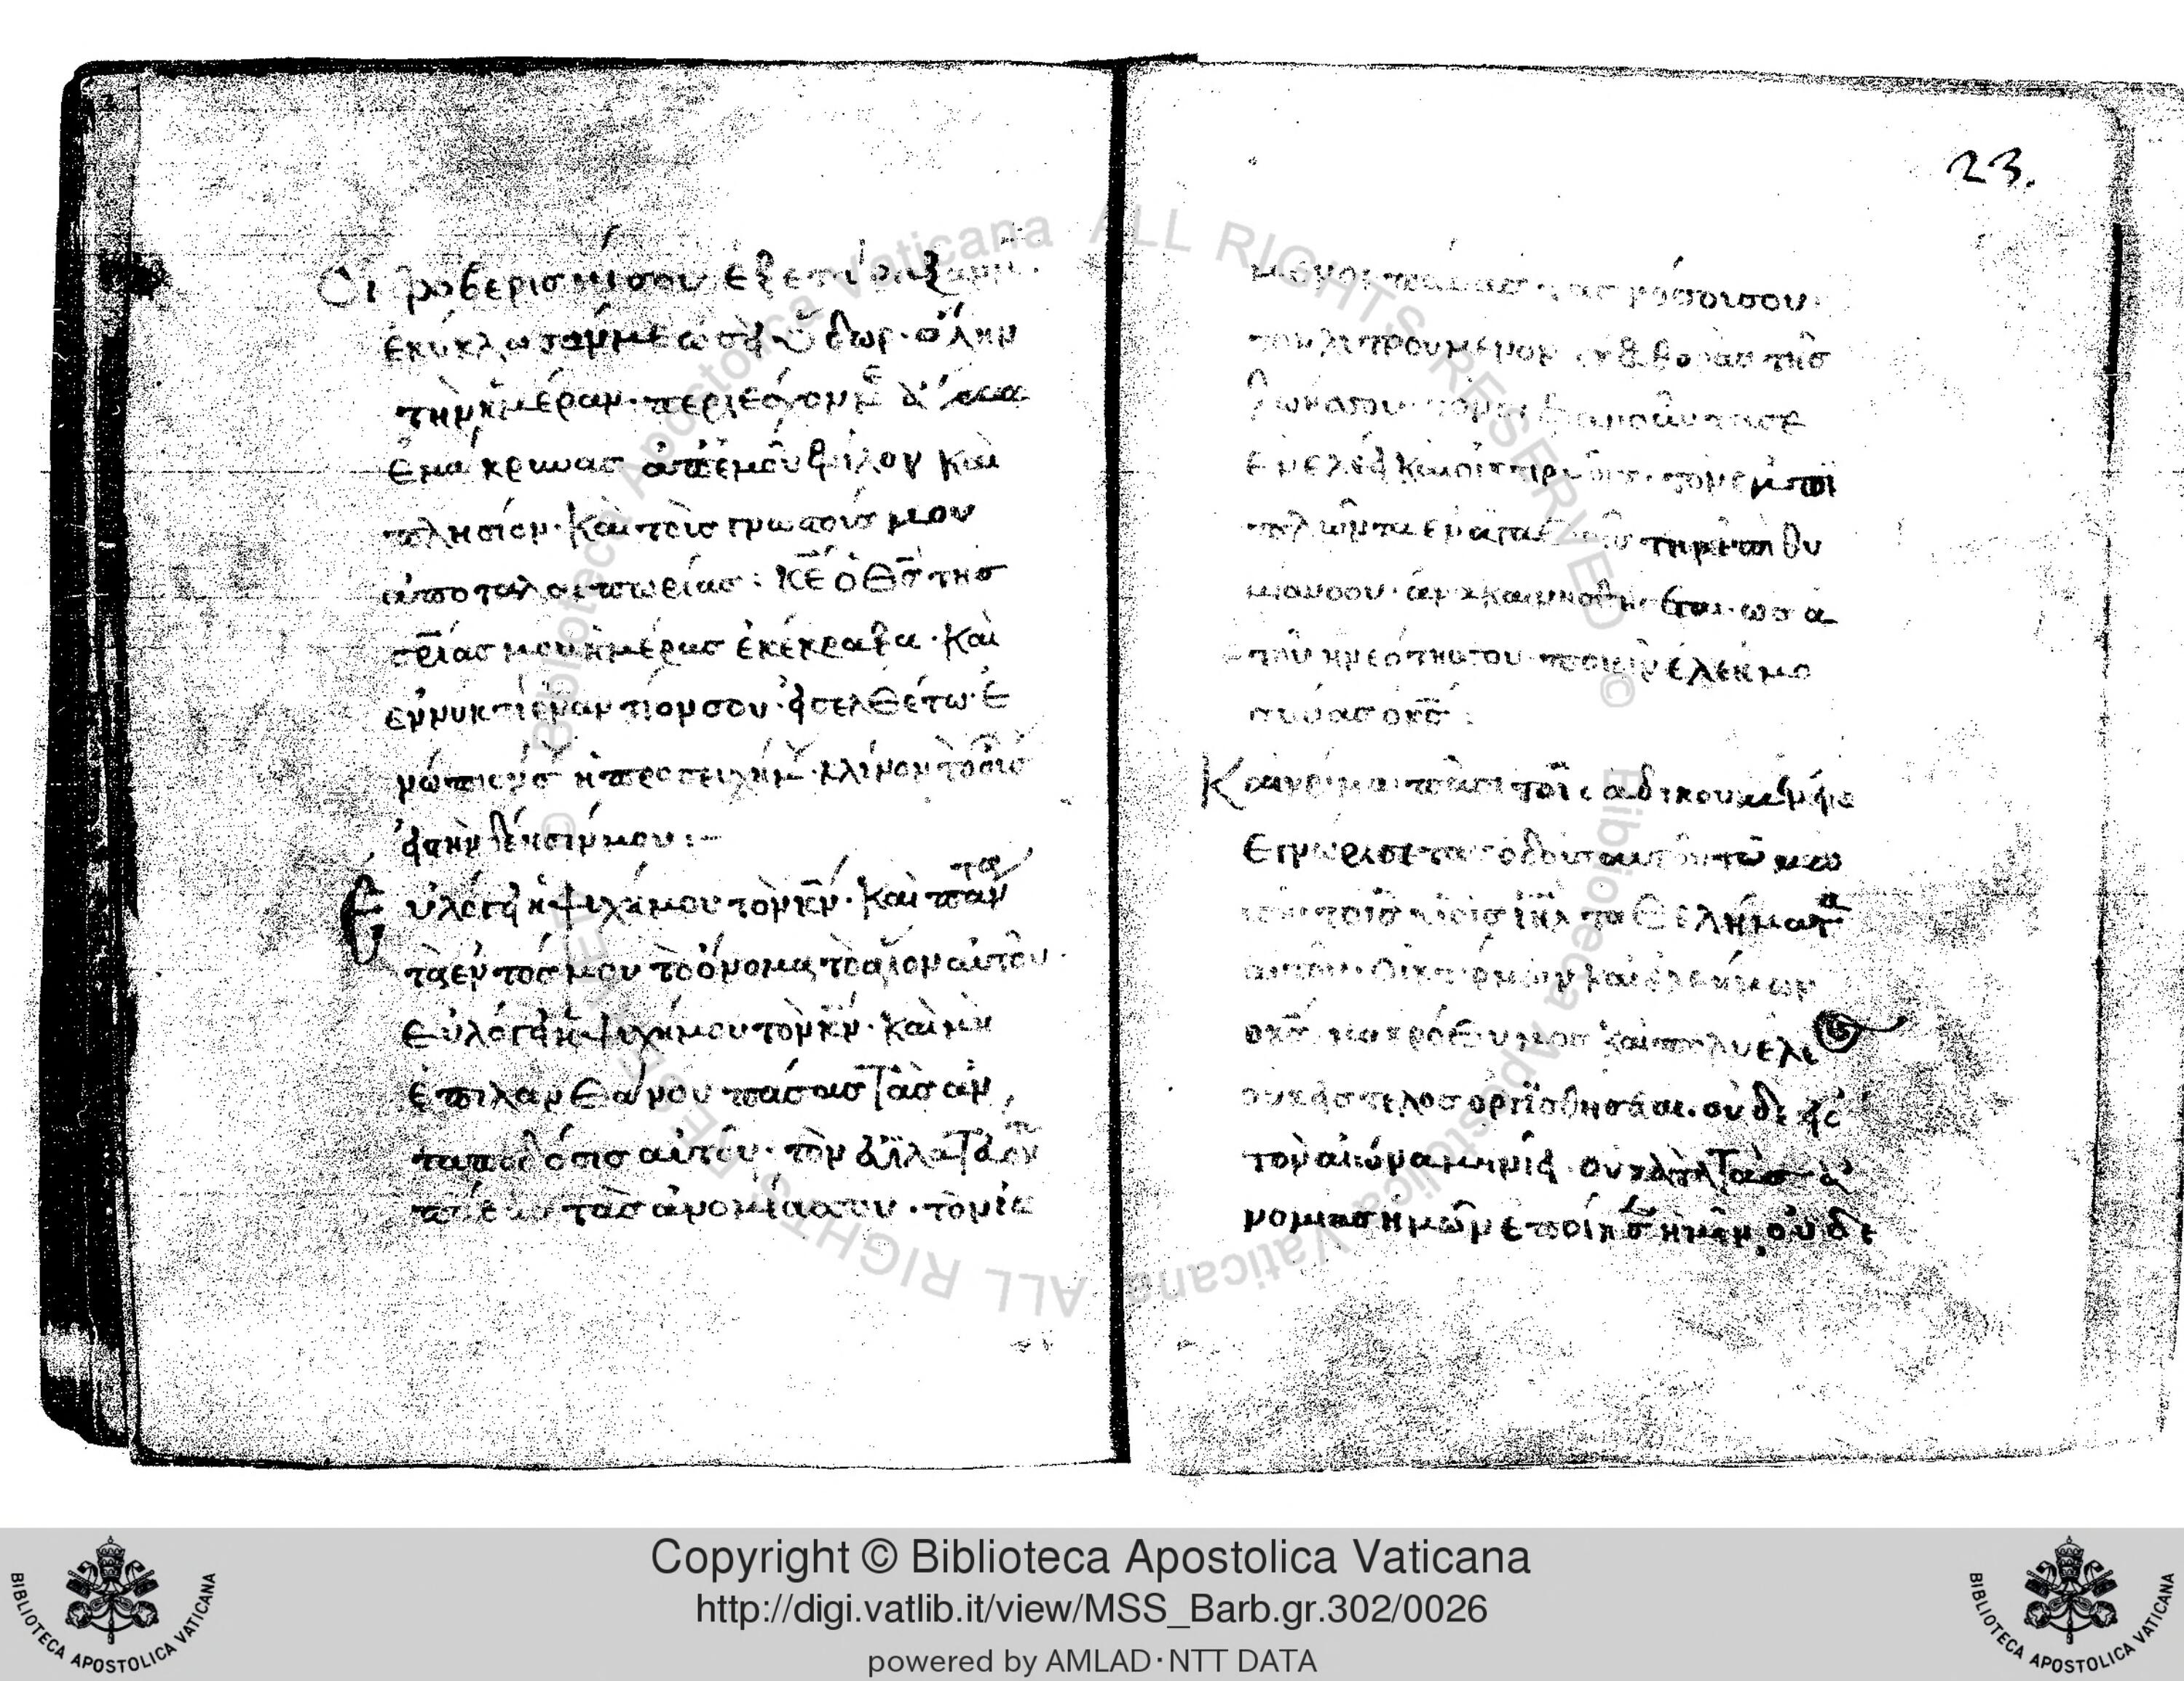 Οι φοβερισμίσου ἐξετάραξαμμε.
ἐκύκλωσαμμε ὡσεὶ ὕδωρ. ὅλην
τὴν ἡμέραν. περιέσχομμε
ἐμάκρυνας ἀπ ἐμοῦ φίλον καὶ
πλησίον. καὶ τοὺσ γνωστούσ μου
ἀπο ταλαιπωρίασ : κε ὁ θσ τησ
σριασ μου ἡμέρασ ἐκέκραξα. καὶ
ἐν νυκτὶ ἐναντίον σου. εἰσελθέτω ἐ
νώπιόν σ ἡ προσευχήμ. κλίνον τὸ οὖσ
εἰς τὴν δέησίν μου :–
Εὐλόγει ἡ ψυχήμου τὸν κν. καὶ πάν
τα
τὰ ἐντόσ μου τὸ ὄνομα τὸ ἅγιον αὐτοῦ.
εὐλόγει ἡ ψυχήμου τὸν κν. καὶ μὴ
ἐπιλανθάνου πάσασ τὰσ ἀν
ταποδόσισ αὐτοῦ. τὸν
τὰσ ἀνομίασσου. τὸν ἰώ
23.
μενον πάσασ τασ νόσουσσου.
τον λυτρούμενον ἐκ φθορᾶσ τὴν
ζωήνσου. τὸν στεφανοῦντασε
ἐν ἐλέει καὶ οἰκτιρμοῖσ. τὸν ἐμπι
πλῶντα ἐν ἀγαθοῖσ τὴν ἐπιθυ
μίανσου. ἀνακαινισθήσεται ὡσ ἀ
ετοῦ ἡ νεότησσου. ποιῶν ἐλεημο
σύνασ ο κσ :
Καὶ κρίμα πᾶσι τοῖς ἀδικουμένοις
ἐγνώρισε τασ ὁδοὺσ αὐτοῦ τῶ μω
τοῖσ υἱοῖσ ιηλ τα θελήματα
αὐτοῦ. οἰκτίρμων καὶ ἐλεήμων
ο κσ. μακρόθυμοσ καὶ πολυέλε
ουκ εἰσ τέλοσ ὀργισθήσεται. οὐδε εἰσ
τὸν αἰῶνα μηνιεῖ. οὐ κατὰ τὰσ ἀ
νομιασ ἡμῶν ἐποίησεν ἡμῖν, οὐδε
Copyright © Biblioteca Apostolica Vaticana
http://digi.vatlib.it/view/MSS_Barb.gr.302/0026
powered by AMLAD·NTT DATA
BIBLIOTECA APOSTOLICA VATICANA
BIBLIOTECA APOSTOLICA VATICANA